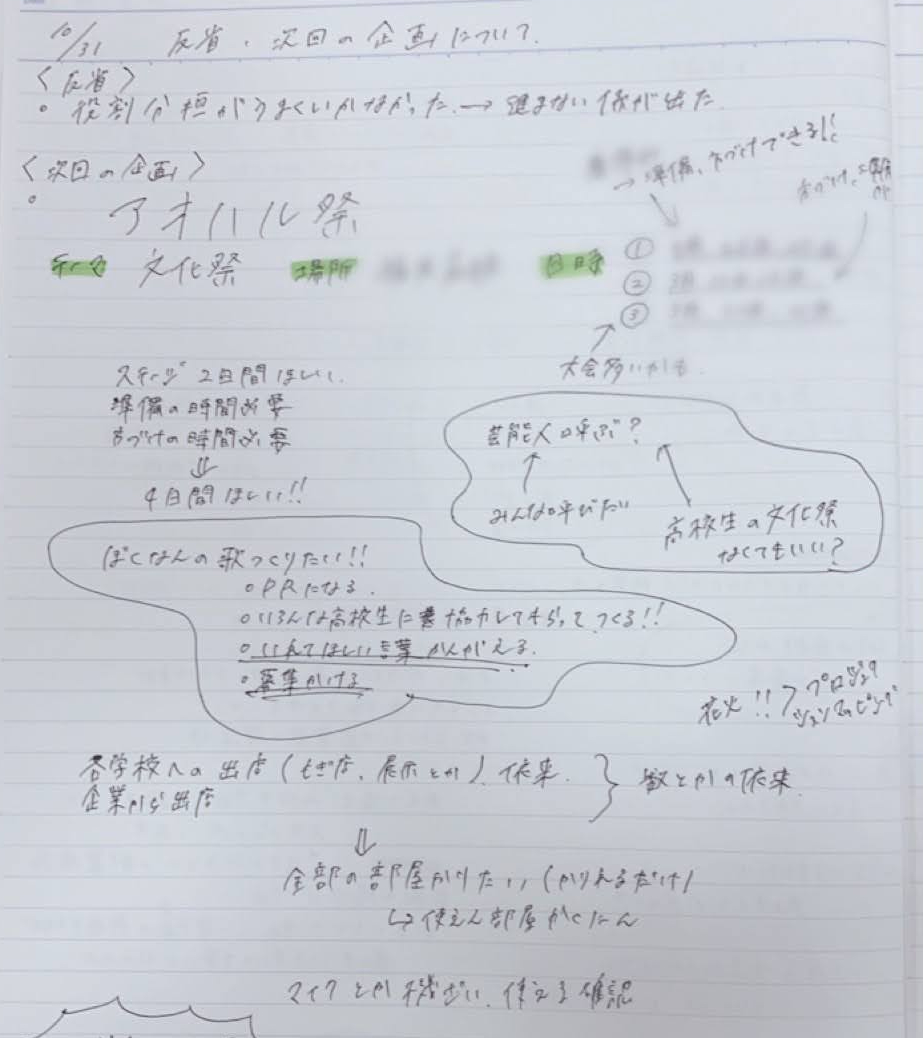 10/31 反省・次回の企画について.
〈反省〉
○ 役割分担がうまくいかなかった→進まない係が出た
〈次回の企画〉
→準備、片づけできる!!
片づけ、
○ アオハル祭
テーマ 文化祭 場所 日時
①
②
③
大会多いかも.
ステージ 2日間ほしい.
準備の時間必要
片づけの時間必要
⇓
4日間ほしい!!
芸能人呼ぶ?
みんな呼びたい
高校生の文化祭
なくてもいい?
ぼくなんの歌つくりたい!!
○PRになる.
○いろんな高校生に協力してもらってつくる!!
○いれてほしい言葉かんがえる.
○募集かける
花火!!
プロジェク
ションマッピング
各学校への出店(もぎ店、展示とか)依来.
企業から出店
} 数とかの依来.
⇓
全部の部屋かりたい(かりれるだけ)
↳使えん部屋かくにん
マイクとか機ざい、使える確認